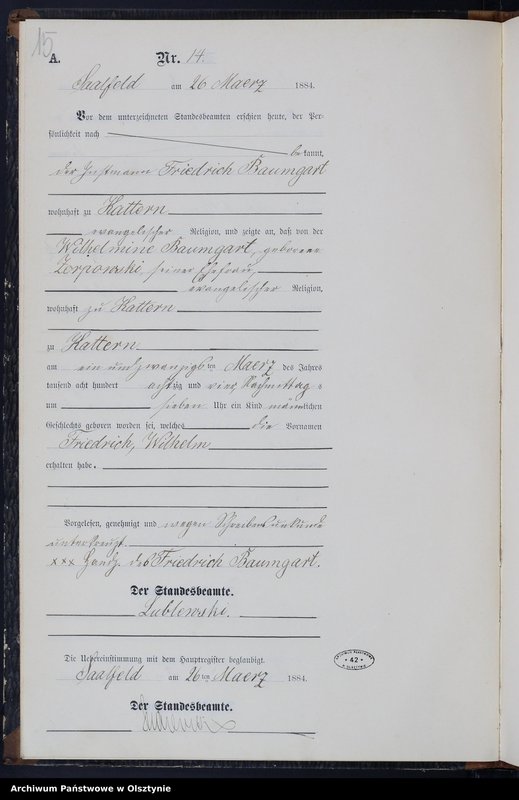 15
A.
Nr. 14.
Saalfeld am 26 Maerz 1884.
Vor dem unterzeichneten Standesbeamten erschien heute, der Per-
sönlichkeit nach
be kannt,
der Instmann Friedrich Baumgart
wohnhaft zu Kattern
evangelischer Religion, und zeigte an, daß von der
Wilhelmine Baumgart, geborener
seiner Ehefrau,
evangelischer Religion,
wohnhaft zu Kattern
zu Kattern
am ein und zwanzigsten Maerz des Jahres
tausend acht hundert achtzig und vier Nachmittag s
um sieben Uhr ein Kind männlichen
Geschlechts geboren worden sei, welches die Vornamen
Friedrich, Wilhelm
erhalten habe.
Vorgelesen, genehmigt und wegen Schreibensunkunde
unterkreuzt.
xxx Handz. des Friedrich Baumgart.
Der Standesbeamte.
Lublewski.
Die Uebereinstimmung mit dem Hauptregister beglaubigt.
Saalfeld am 26ten Maerz 1884.
Der Standesbeamte.
42
Archiwum Państwowe w Olsztynie